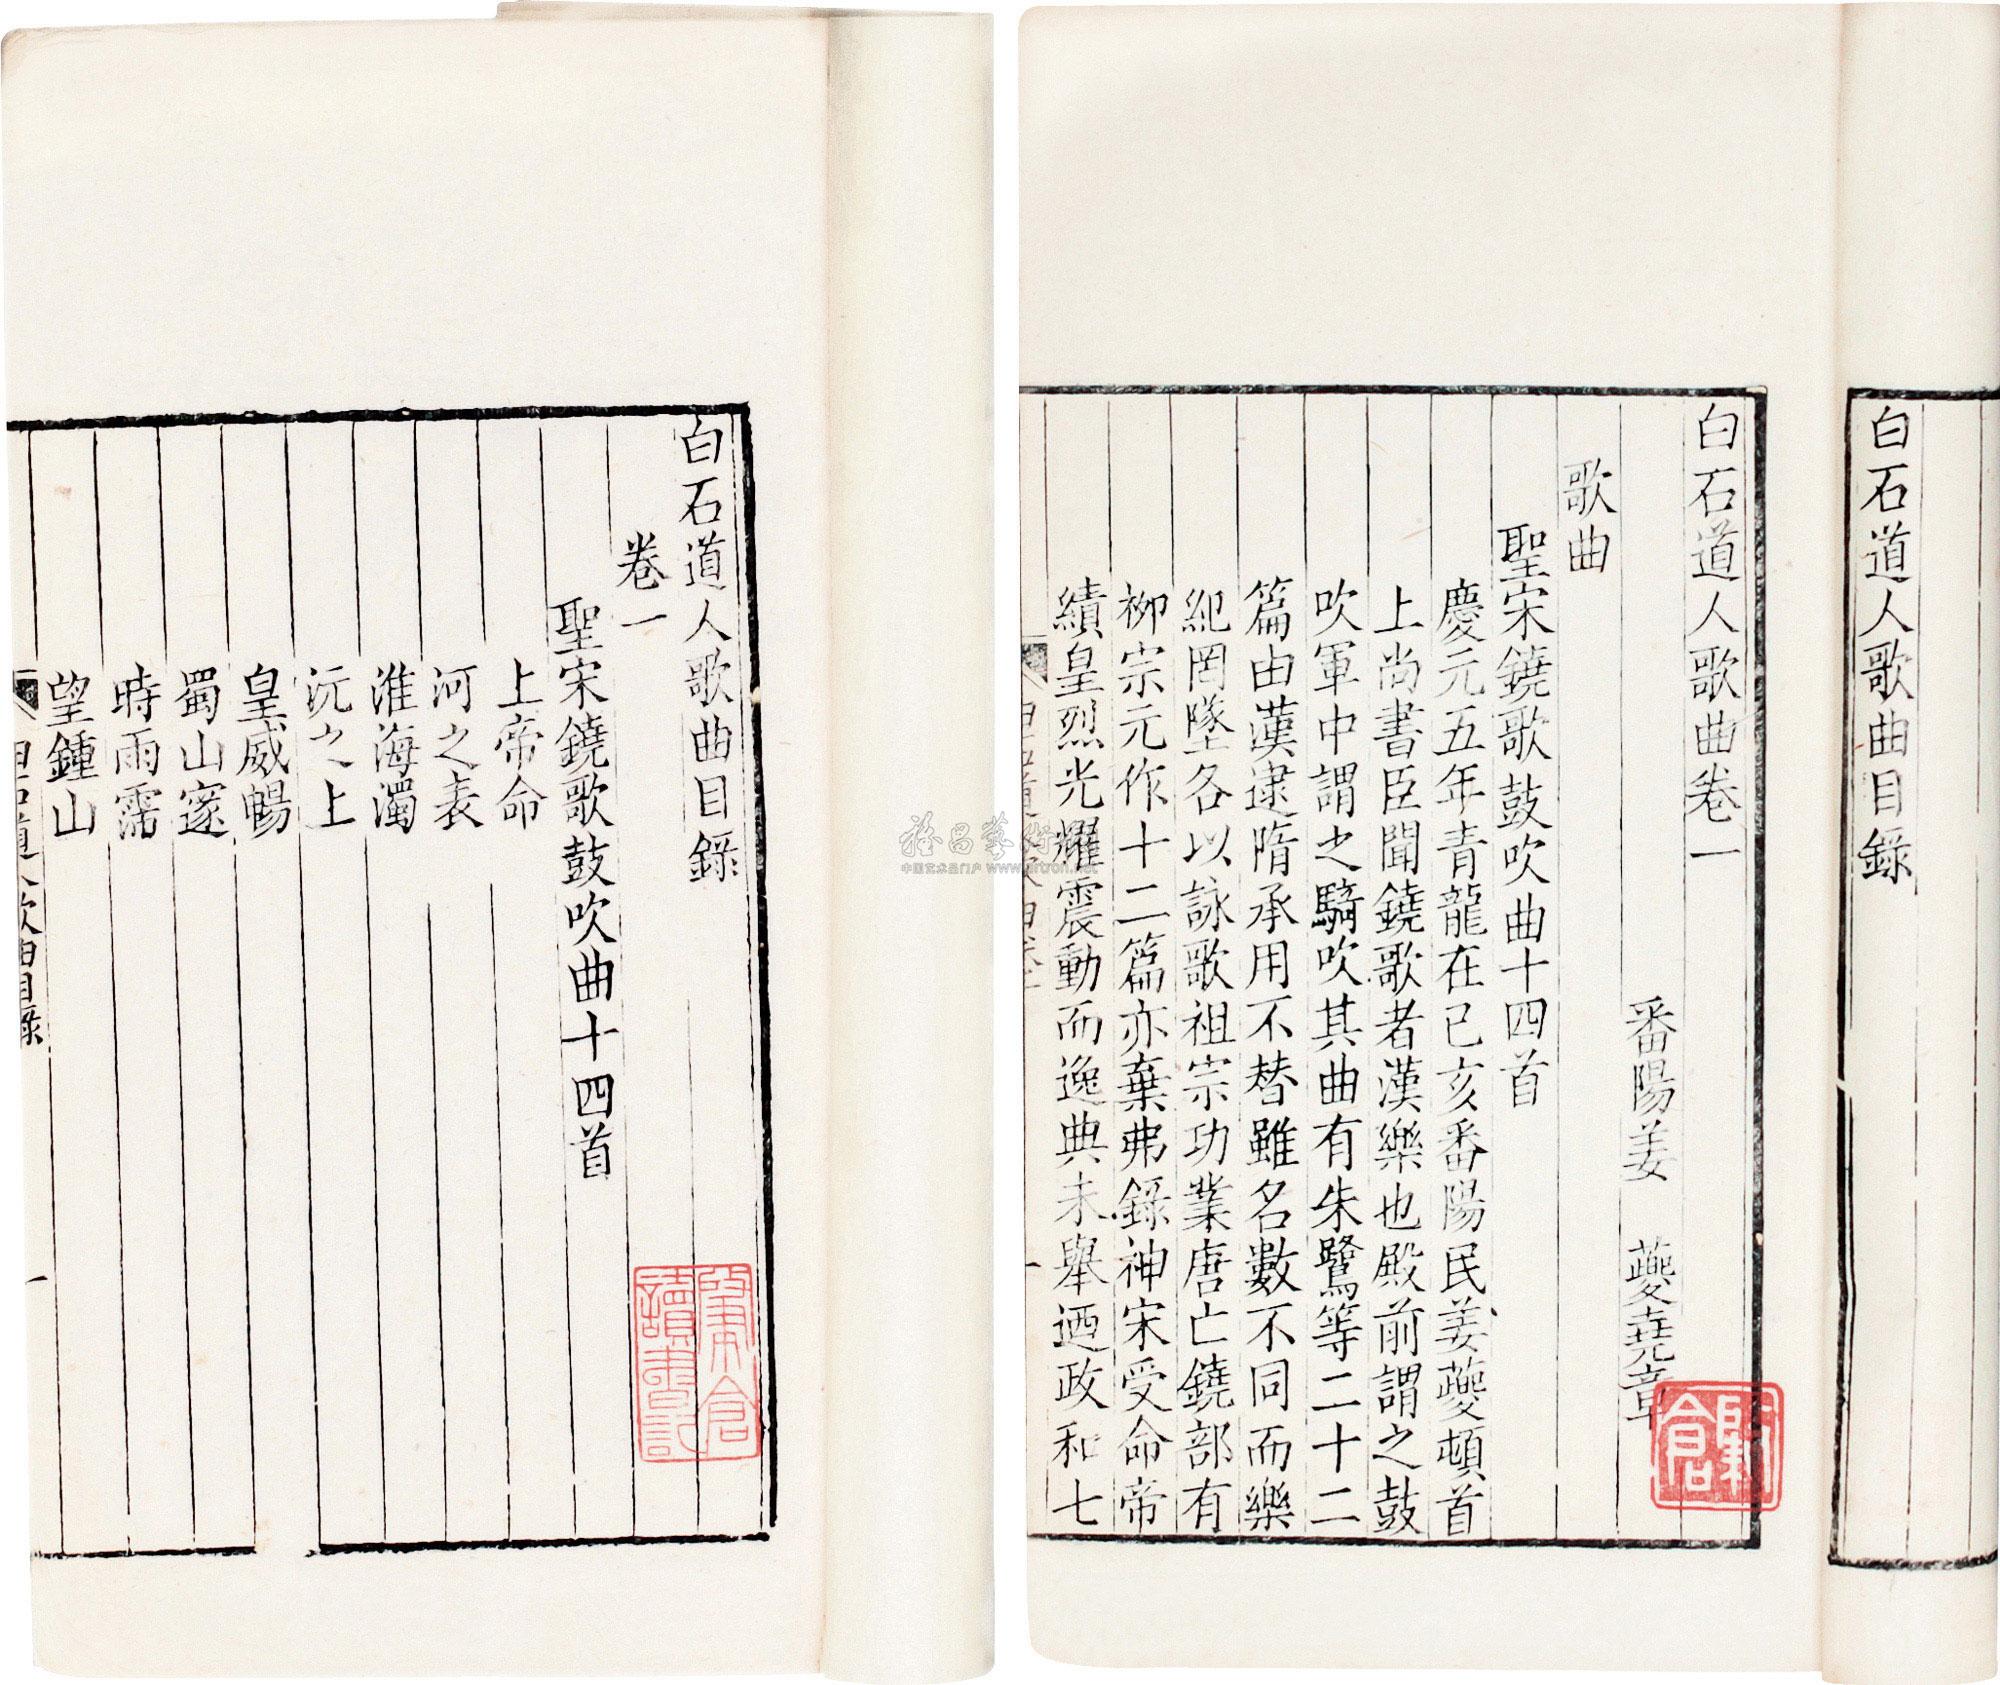 白石道人歌曲目錄
白石道人歌曲卷一
番陽姜 夔堯章
歌曲
聖宋鐃歌鼓吹曲十四首
慶元五年青龍在己亥番陽民姜夔頓首
上尚書臣聞鐃歌者漢樂也殿前謂之鼓
吹軍中謂之騎吹其曲有朱鷺等二十二
篇由漢逮隋承用不替雖名數不同而樂
紀罔墜各以詠歌祖宗功業唐亡鐃部有
柳宗元作十二篇亦棄弗錄神宋受命帝
績皇烈光耀震動而逸典未舉迺政和七
一
白石道人歌曲目錄
卷一
聖宋鐃歌鼓吹曲十四首
上帝命
河之表
淮海濁
沅之上
皇威暢
蜀山邃
時雨霈
望鍾山
白石道人歌曲目錄
一
讀書記
中国艺术品门户 www.artron.net